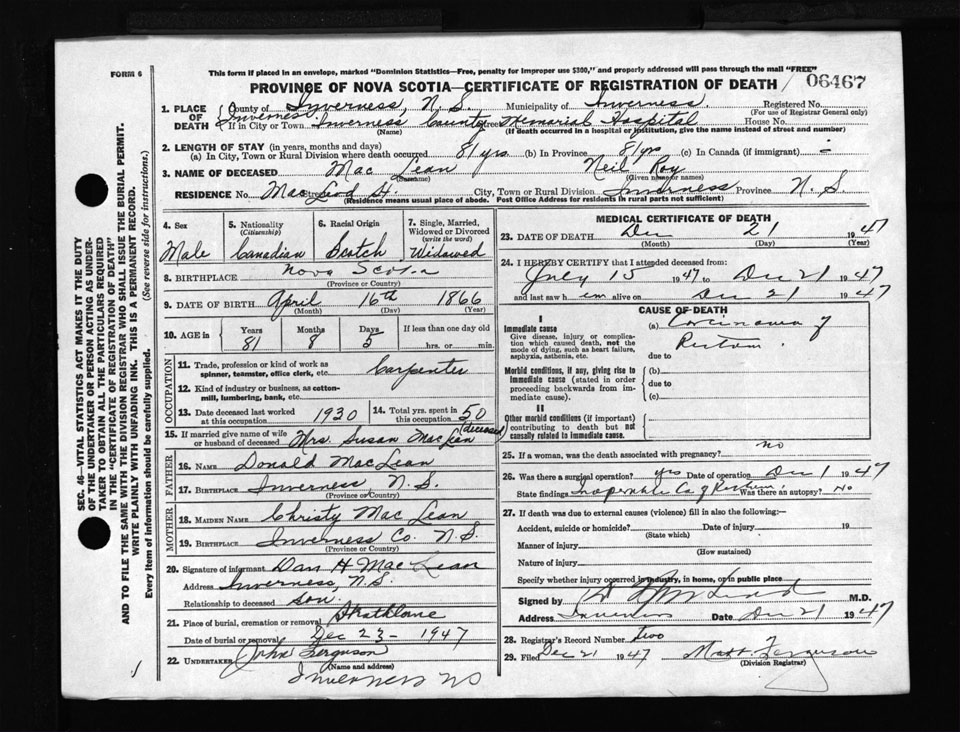 FORM 6
This form if placed in an envelope, marked "Dominion Statistics—Free, penalty for improper use $300," and properly addressed will pass through the mail "FREE"
PROVINCE OF NOVA SCOTIA—CERTIFICATE OF REGISTRATION OF DEATH 06467
1. PLACE OF DEATH County of Inverness, N.S. Municipality of Inverness. Registered No.
(For use of Registrar General only)
If in City or Town Inverness Inverness County Street Memorial Hospital House No.
(Name) (If death occurred in a hospital or institution, give the name instead of street and number)
2. LENGTH OF STAY (in years, months and days)
(a) In City, Town or Rural Division where death occurred 81 yrs (b) In Province 81 yrs (c) In Canada (if immigrant) -
3. NAME OF DECEASED Mac Lean Neil Roy
(Surname) (Given name or names)
RESIDENCE No. MacLeod St. City, Town or Rural Division Inverness Province N.S.
(Residence means usual place of abode. Post Office Address for residents in rural parts not sufficient)
4. Sex Male
5. Nationality (Citizenship) Canadian
6. Racial Origin Scotch
7. Single, Married, Widowed or Divorced (write the word) Widowed
8. BIRTHPLACE Nova Scotia
(Province or Country)
9. DATE OF BIRTH April 16th 1866
(Month) (Day) (Year)
10. AGE in Years Months Days If less than one day old
81 8 5 hrs. or min.
OCCUPATION
11. Trade, profession or kind of work as spinner, teamster, office clerk, etc. Carpenter
12. Kind of industry or business, as cotton-mill, lumbering, bank, etc.
13. Date deceased last worked at this occupation 1930
14. Total yrs. spent in this occupation 50
15. If married give name of wife or husband of deceased Mrs. Susan MacLean (deceased)
FATHER
16. NAME Donald MacLean
17. BIRTHPLACE Inverness, N.S.
(Province or Country)
MOTHER
18. MAIDEN NAME Christy Mac Lean
19. BIRTHPLACE Inverness Co. N.S.
(Province or Country)
20. Signature of informant Dan H MacLean
Address Inverness, N.S.
Relationship to deceased son.
21. Place of burial, cremation or removal Strathlorne
Date of burial or removal Dec 23- 1947
22. UNDERTAKER John Ferguson
(Name and address)
Inverness NS
MEDICAL CERTIFICATE OF DEATH
23. DATE OF DEATH Dec 21 1947
(Month) (Day) (Year)
24. I HEREBY CERTIFY that I attended deceased from:
July 15 1947 to Dec 21 1947
and last saw h im alive on Dec 21 1947
CAUSE OF DEATH
I
Immediate cause
Give disease, injury or complication which caused death, not the mode of dying, such as heart failure, asphyxia, asthenia, etc.
(a) Carcinoma of
Rectum.
due to
Morbid conditions, if any, giving rise to immediate cause (stated in order proceeding backwards from immediate cause).
(b)
due to
(c)
II
Other morbid conditions (if important) contributing to death but not causally related to immediate cause.
25. If a woman, was the death associated with pregnancy? no
26. Was there a surgical operation? yes Date of operation Dec 1 1947
State findings Inoperable Ca of Rectum Was there an autopsy? No
27. If death was due to external causes (violence) fill in also the following:—
Accident, suicide or homicide? Date of injury 19
(State which)
Manner of injury
(How sustained)
Nature of injury
Specify whether injury occurred in industry, in home, or in public place
Signed by M.D.
Address Inverness Date Dec 21 1947
28. Registrar's Record Number two
29. Filed Dec 21 1947 Matt. Ferguson
(Division Registrar)
SEC. 46—VITAL STATISTICS ACT MAKES IT THE DUTY
OF THE UNDERTAKER OR PERSON ACTING AS UNDER-
TAKER TO OBTAIN ALL THE PARTICULARS REQUIRED
IN THE "CERTIFICATE OF REGISTRATION OF DEATH"
AND TO FILE THE SAME WITH THE DIVISION REGISTRAR WHO SHALL ISSUE THE BURIAL PERMIT.
WRITE PLAINLY WITH UNFADING INK. THIS IS A PERMANENT RECORD.
Every item of information should be carefully supplied. (See reverse side for instructions.)